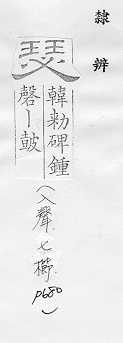 隸辨
瑟
韓勑碑鍾
磬｜鼓
(入聲七櫛 p680)